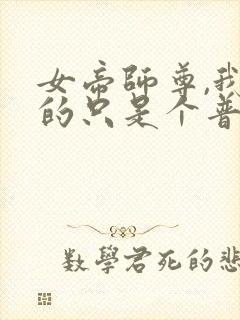 女帝師尊,我
的只是个普
数學君死的悲